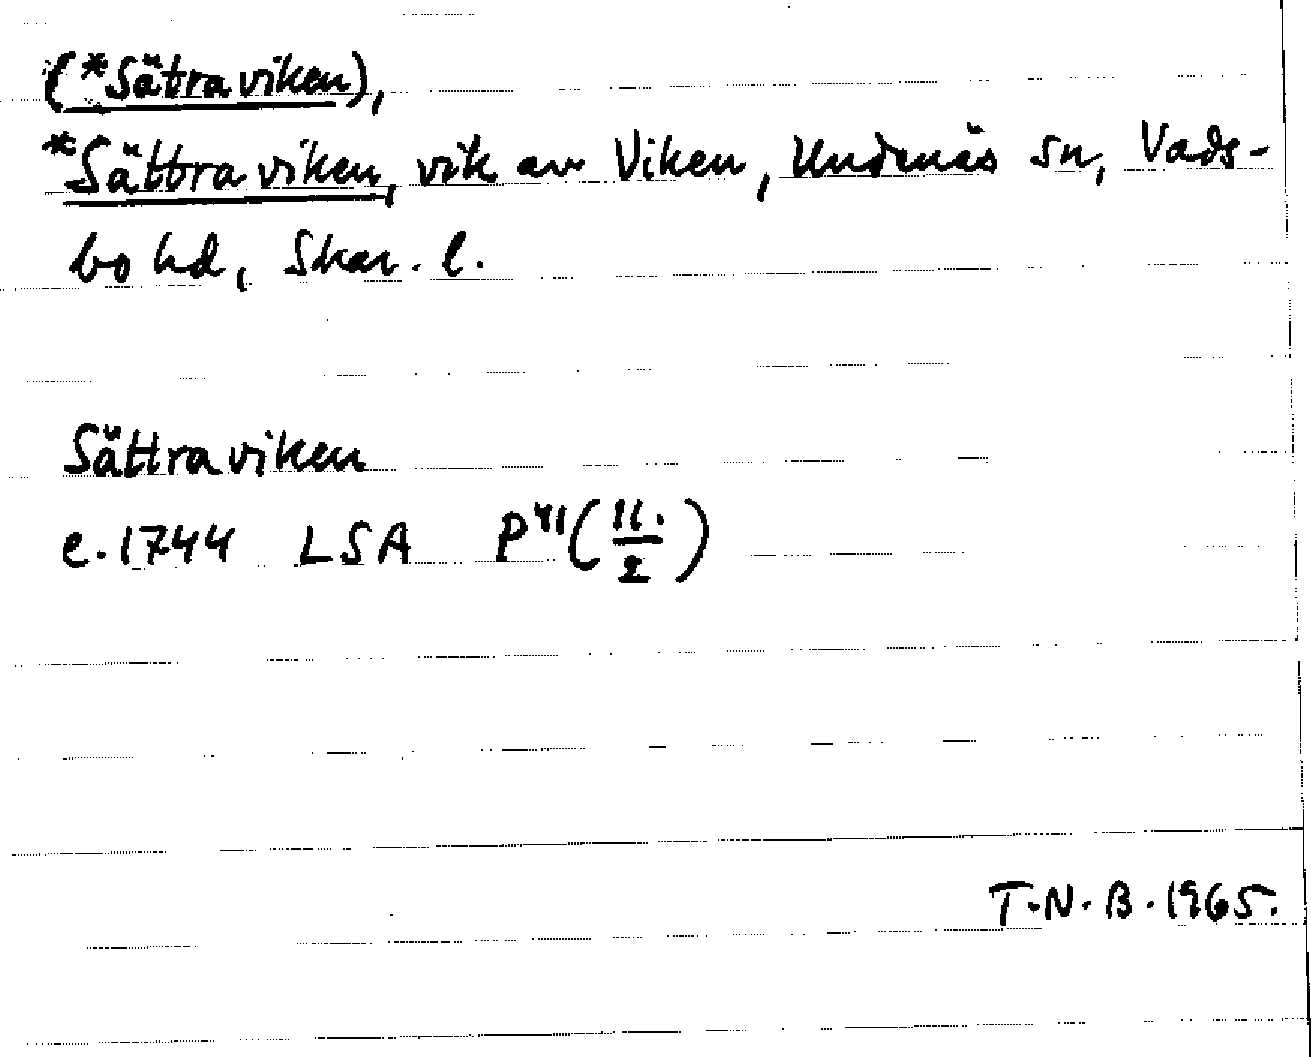 (*Sätraviken),
*Sättraviken, vik av Viken, Undenäs sn, Vads-
bo hd, Skar. l.
Sättraviken
c. 1744 LSA P41 (11./2)
T.N.B. 1965.